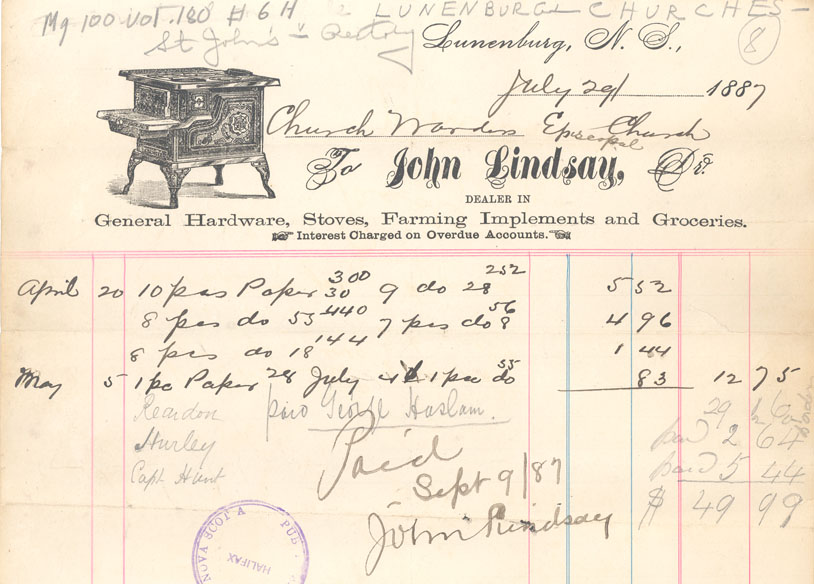 Mg 100 vol. 180 # 6 H LUNENBURG - CHURCHES -
St John's Rectory
8
Lunenburg, N. S.,
July 29 1887
Church Wardens Episcopal Church
To John Lindsay, Dr.
DEALER IN
General Hardware, Stoves, Farming Implements and Groceries.
Interest Charged on Overdue Accounts.
April 20 10 pcs Paper 30 300 9 do 28 252 5 52
8 pcs do 55 440 7 pcs do 8 56 4 96
8 pcs do 18 144 1 44
May 5 1 pc Paper 28 July 1 pc do 55 83 12 75
Reardon paid George Haslam. 29
Hurley paid 2 64
Capt Hunt paid 5 44
$ 49 99
Paid
Sept 9/87
John Lindsay
NOVA SCOTA PUB
HALIFAX